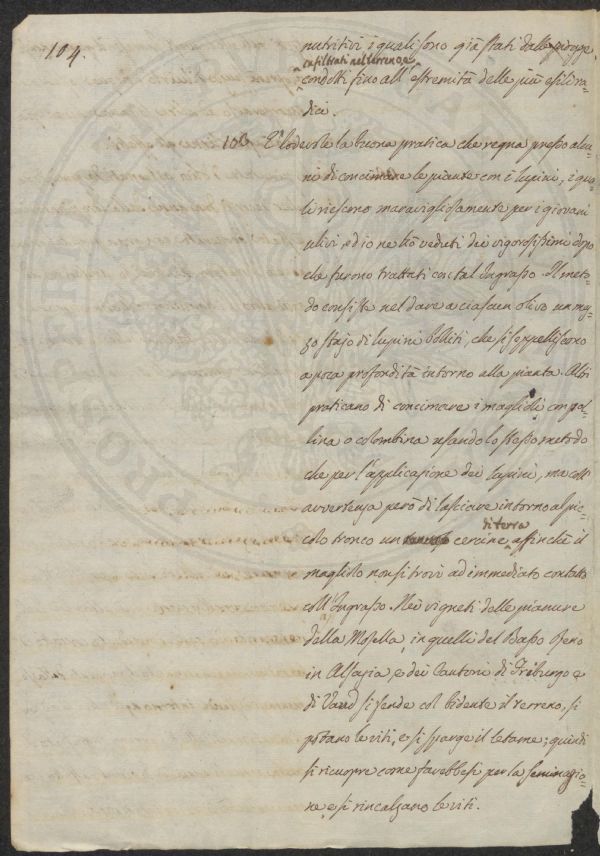 104.
nutritivi i quali sono già stati dalle piogge,
infiltrati nel terreno, e
condotti fino all'estremità delle più esili ra=
dici.
103. È lodevole la buona pratica che regna presso alcu=
ni di concimare le piante con i lupini, i qua=
li riescono maravigliosamente per i giovani
ulivi, ed io ne ho veduti dei vigorosissimi dopo
che furono trattati con tal Ingrasso. Il meto=
do consiste nel dare a ciascun olivo un mez=
zo stajo di lupini bolliti, che si seppelliscono
a poca profondità intorno alla pianta. Altri
praticano di concimare i maglioli con pol=
lina o colombina usando lo stesso metodo
che per l'applicazione dei lupini, ma coll'
avvertenza però di lasciare intorno al pic=
di terra
colo tronco un cercine affinchè il
magliolo non si trovi ad immediato contatto
coll'Ingrasso. Nei vigneti delle pianure
della Mosella, in quelli del Basso Reno
in Alsazia, e dei Cantoni di Friburgo e
di Vaud si fende col bidente il terreno, si
potano le viti, e si sparge il letame; quindi
si ricuopre come farebbesi per la seminagio=
ne, e si rincalzano le viti.